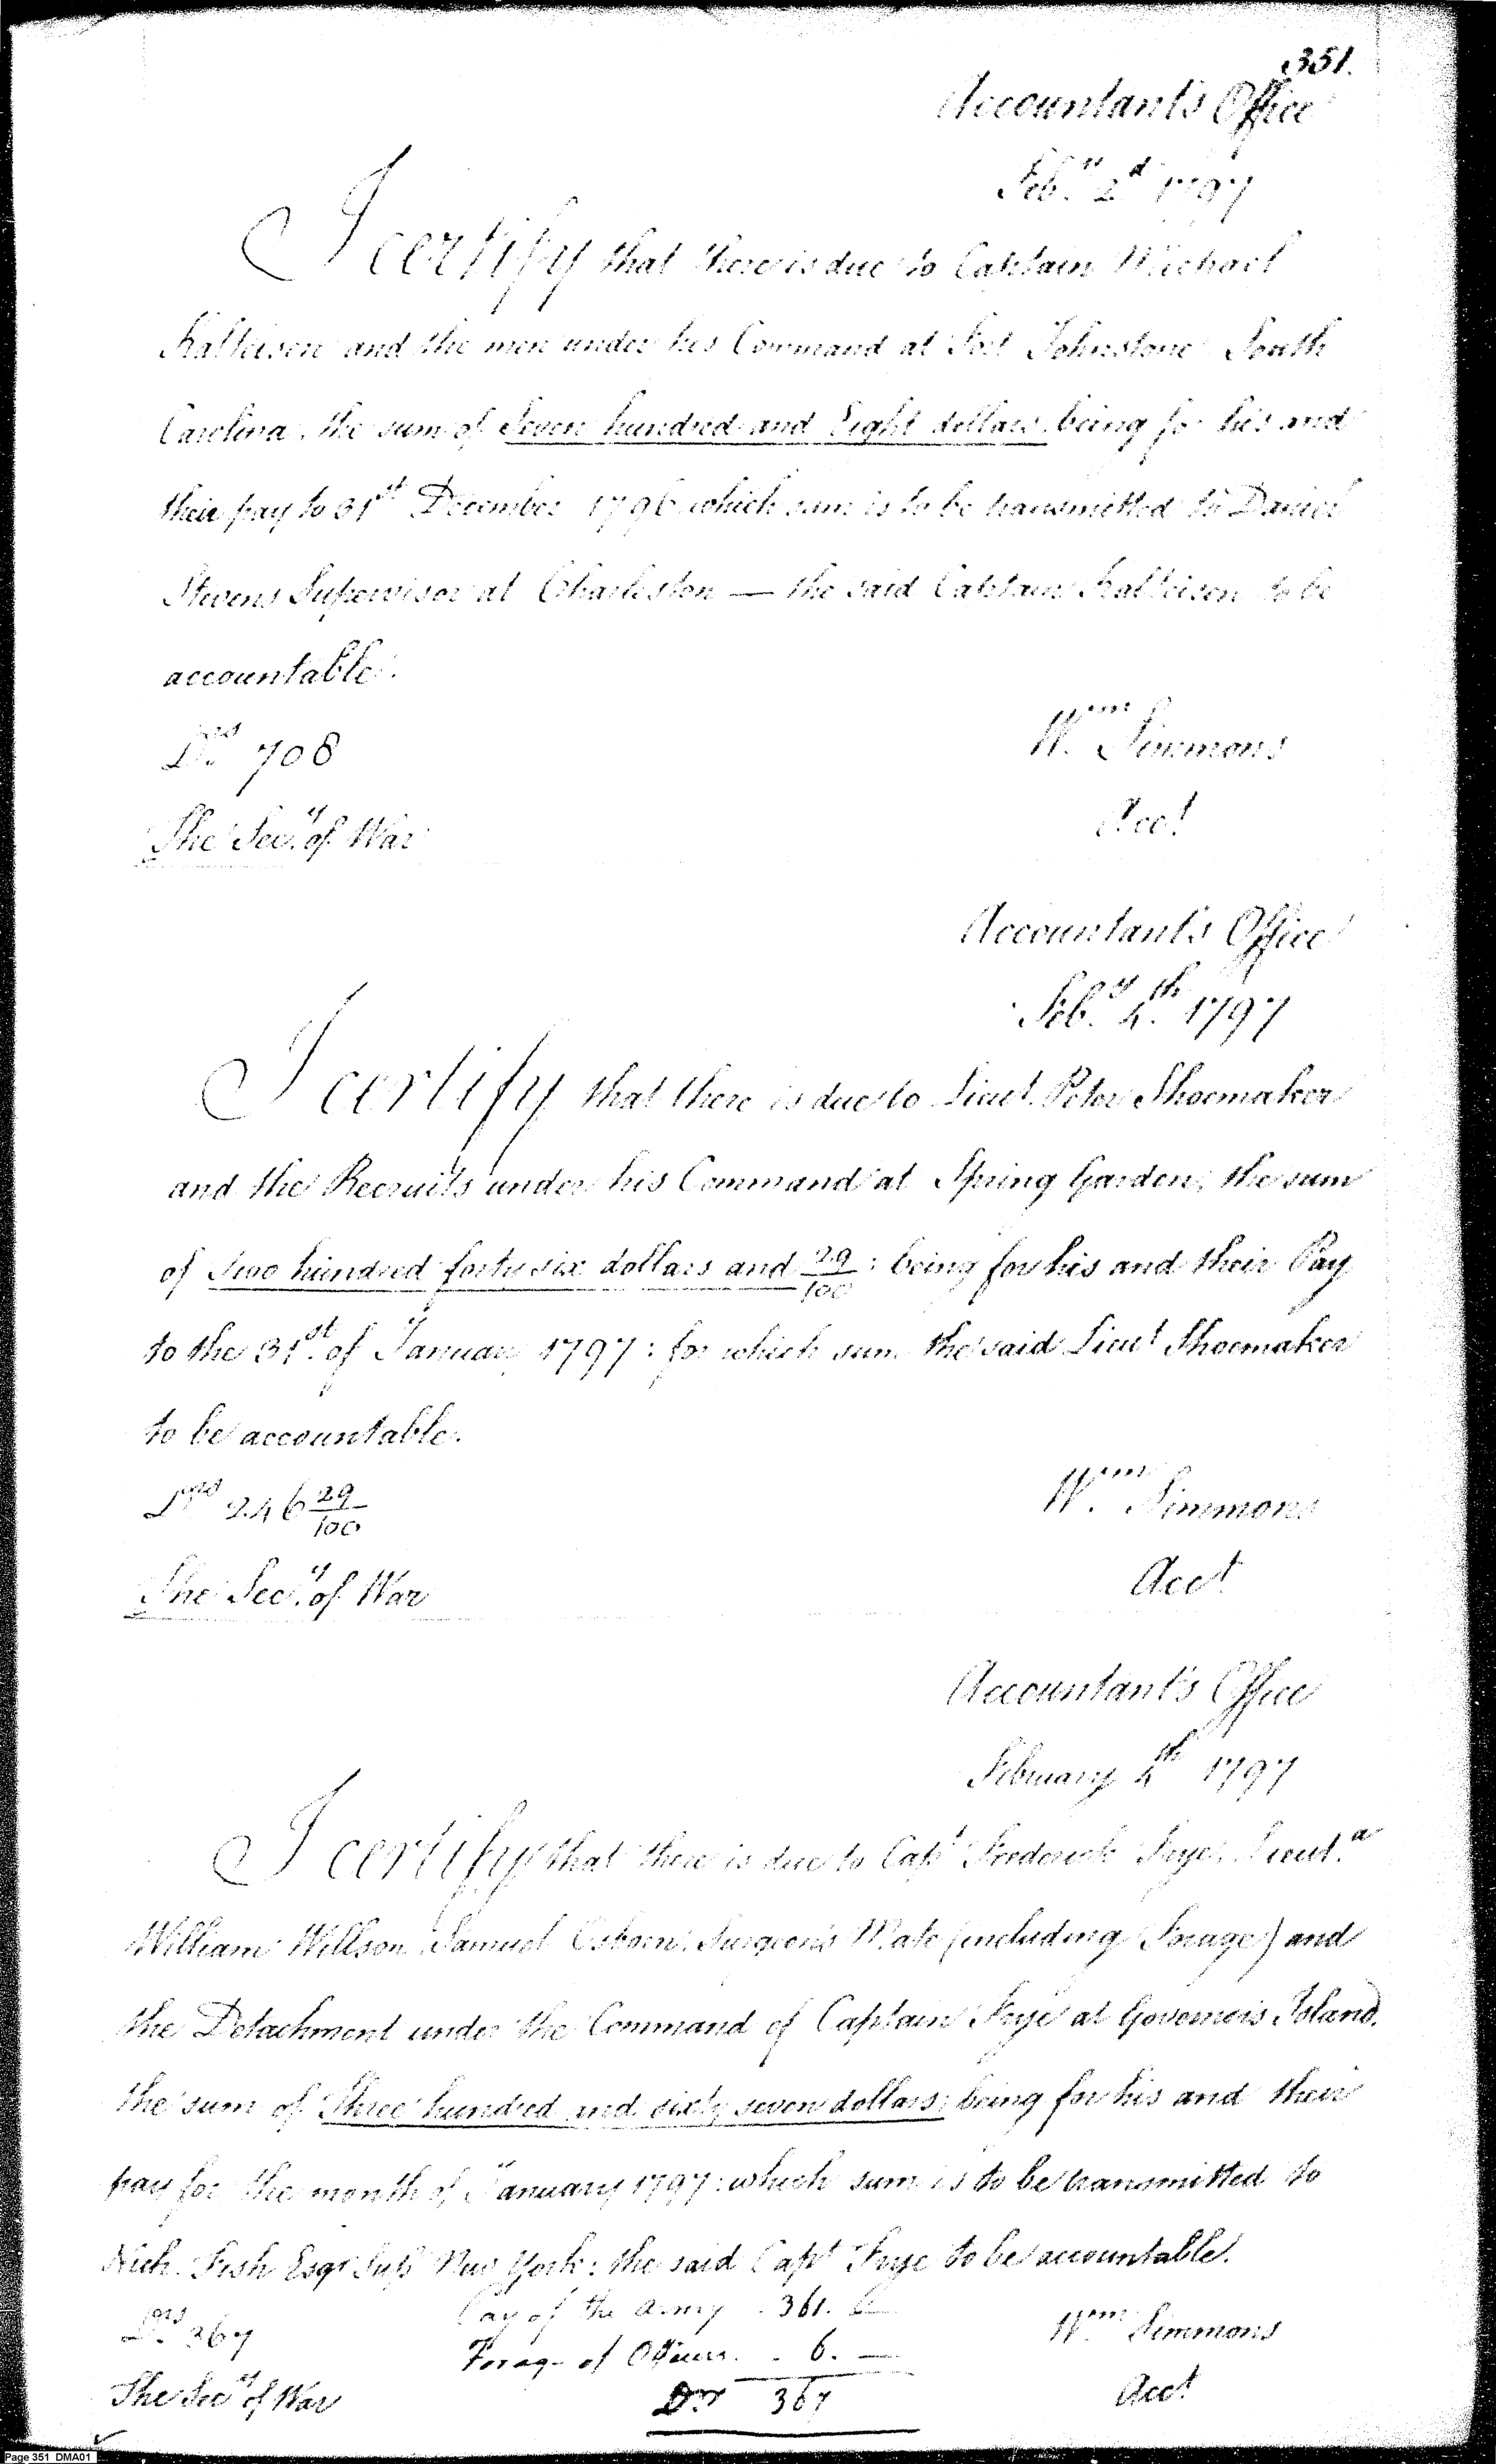 351.
Accountant's Office
Feb.ry 2d 1797
I certify that there is due to Captain Michael
Kalteisen and the men under his Command at Fort Johnstone South
Carolina, the sum of Seven hundred and Eight dollars, being for his and
their pay to 31st December 1796 which sum is to be transmitted to Daniel
Stevens Supervisor at Charleston — the said Captain Kalteisen to be
accountable.
Drs 708
Wm Simmons
The Secy of War
Acct
Accountant's Office
Feb.y 4th 1797
I certify that there is due to Lieut. Peter Shoemaker
and the Recruits under his Command at Spring Garden, the sum
of Two hundred forty six dollars and 29/100: being for his and their Pay
to the 31st of January 1797: for which sum the said Lieut Shoemaker
to be accountable.
Drs 246 29/100
Wm Simmons
The Secy of War
Acct
Accountant's Office
February 4th 1797
I certify that there is due to Capt Frederick Frye, Lieut.a
William Willson, Samuel Osborn, Surgeon's Mate (including Forage) and
the Detachment under the Command of Captain Frye at Governors Island,
the sum of Three hundred and sixty seven dollars; being for his and their
pay for the month of January 1797: which sum is to be transmitted to
Nich. Fish Esqr Sup New York: the said Capt Frye to be accountable.
Pay of the Army . 361. —
Drs 367
Wm Simmons
Forage of Officers . . 6. —
The Secy of War
Drs 367
Acct
Page 351 DMA01